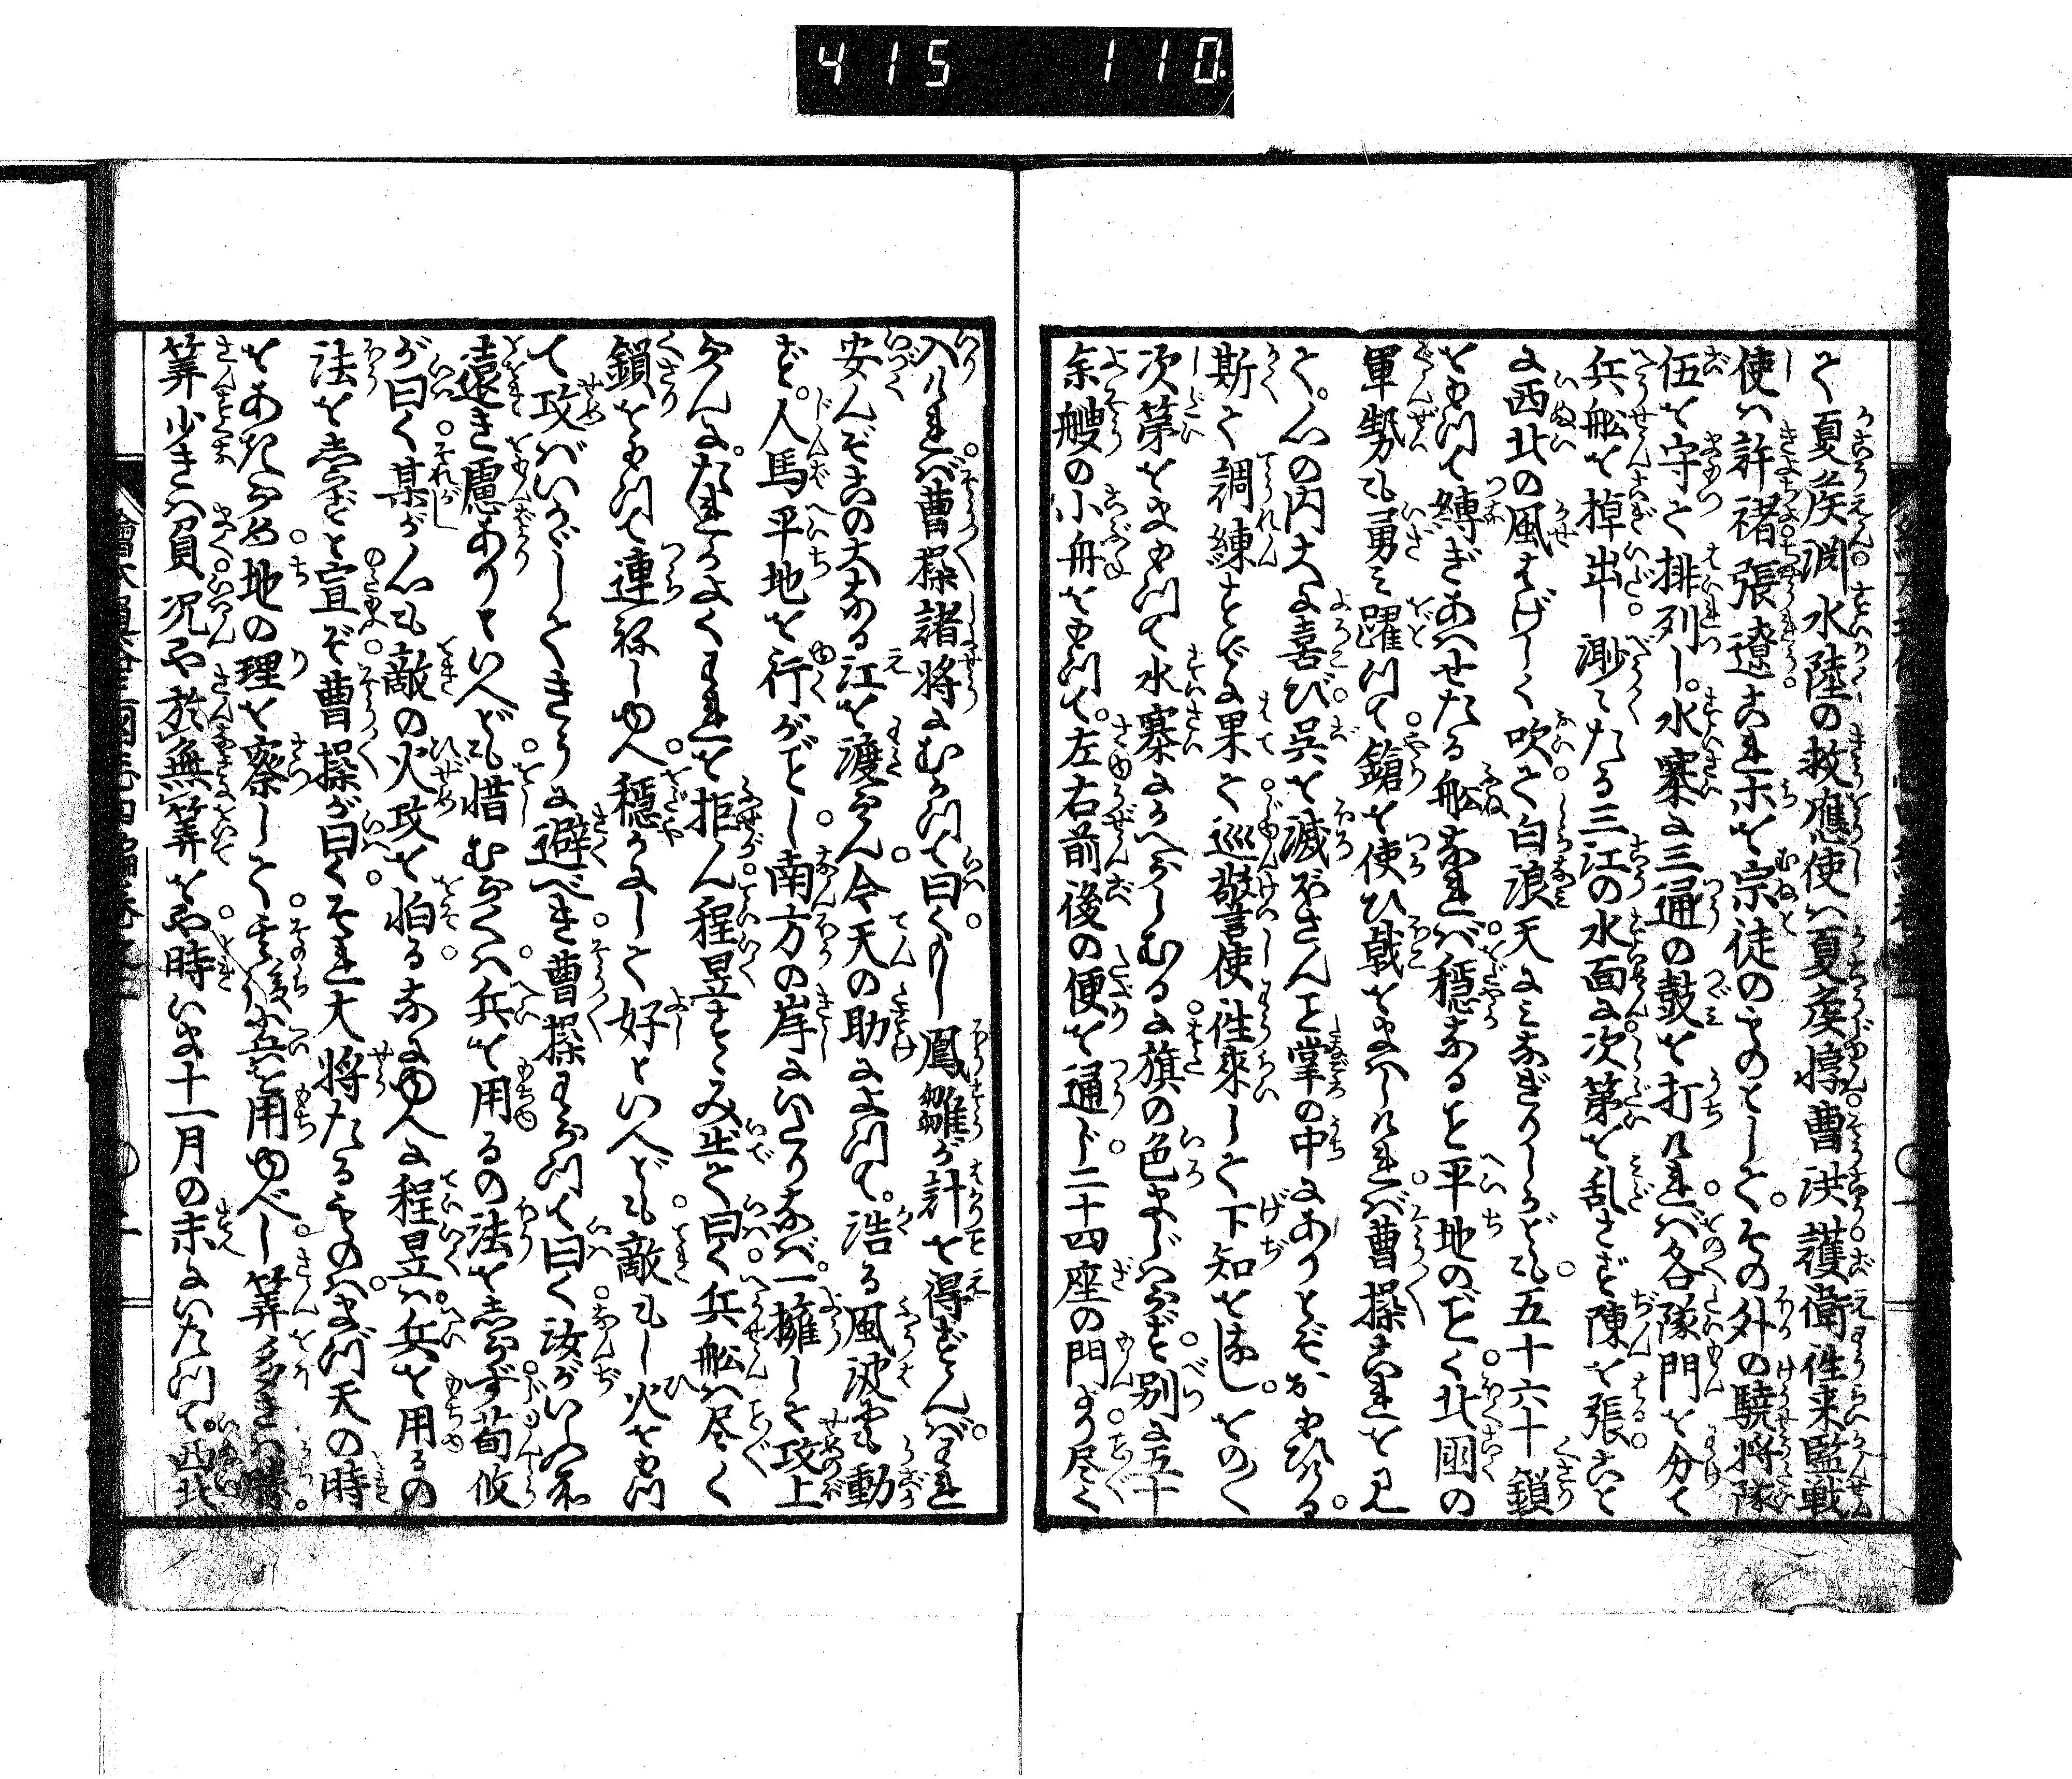 415 110
て夏侯淵水陸の救應使ハ夏侯惇曹洪護衛徃来監戦
使ハ許褚張遼これホを宗徒のものとして。その外の驍将隊
伍を守て排列し。水寨に三通の鼓を打けれバ各隊門を分て
兵舩を掉出し渺々たる三江の水面に次第を乱さず陳を張こと
に西北の風はげしく吹て白浪天にミなぎりしかども五十六十鎖
をもつて縛ぎあハせたる舩なれバ穏なること平地のごとく北國の
軍勢も勇ミ躍つて鎗を使ひ戟をまハしけれバ曹操これを見
て。心の内大に喜び呉を滅ぼさんこと掌の中にありとぞおもひける。
斯て調練すでに果て巡警使徃來して下知をなし。をのく
次第をまもつて水寨にかへらしむるに旗の色まじハらず別に五十
余艘の小舟をもつて。左右前後の便を通ド二十四座の門より尽く
入けれバ。曹操諸将にむかつて曰くもし鳳雛が計を得ずんバ。われ
安んぞこの大なる江を渡らん今天の助によつて。浩る風波にも動
ず。人馬平地を行がごとし南方の岸にいたりなバ。一擁して攻上
らんに。たれかよくこれを拒ん程昱すゝみ出て曰く兵舩ハ尽く
鎖をもつて連ねしゆへ穏かにして好といへども敵もし火をもつ
て攻バいかゞしてきりに避べき曹操わらつて曰く汝がいへる
遠き慮ありといへども惜むらくハ兵を用るの法をしらず荀攸
が曰く某が心も敵の火攻を怕るなにゆへに程昱ハ。兵を用るの
法をしらずと宣ぞ曹操が曰くそれ大将たるものハ。まづ天の時
をあきらめ地の理を察して。其後に兵を用ゆべし。筭多きハ勝。
筭少きハ負況や於無筭をや時いま十一月の末にいたつて。西北